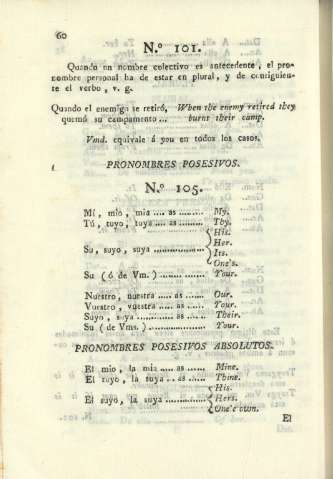 60
N.º 101.
Quando un nombre colectivo es antecedente, el pro-
nombre personal ha de estar en plural, y de consiguien-
te el verbo, v. g.
Quando el enemigo se retiró, When the enemy retired they
quemó su campamento... burns their camp.
Vmd. equivale á you en todos los casos.
PRONOMBRES POSESIVOS.
N.º 105.
Mi, mio, mia .... as ........ My.
Tú, tuyo, tuya .... as ........ Thy.
His.
Her.
Su, suyo, suya ............... Its.
One's.
Su (ó de Vm.) ............ Your.
Nuestro, nuestra ..... as ...... Our.
Vuestro, vuestra ..... as ...... Your.
Suyo, suya ............... as ...... Their.
Su (de Vms.) ................ Your.
PRONOMBRES POSESIVOS ABSOLUTOS.
El mio, la mia ..... as ...... Mine.
El tuyo, la tuya ... as ..... Thine.
His.
El suyo, la suya ............. Hers.
One's own.
El